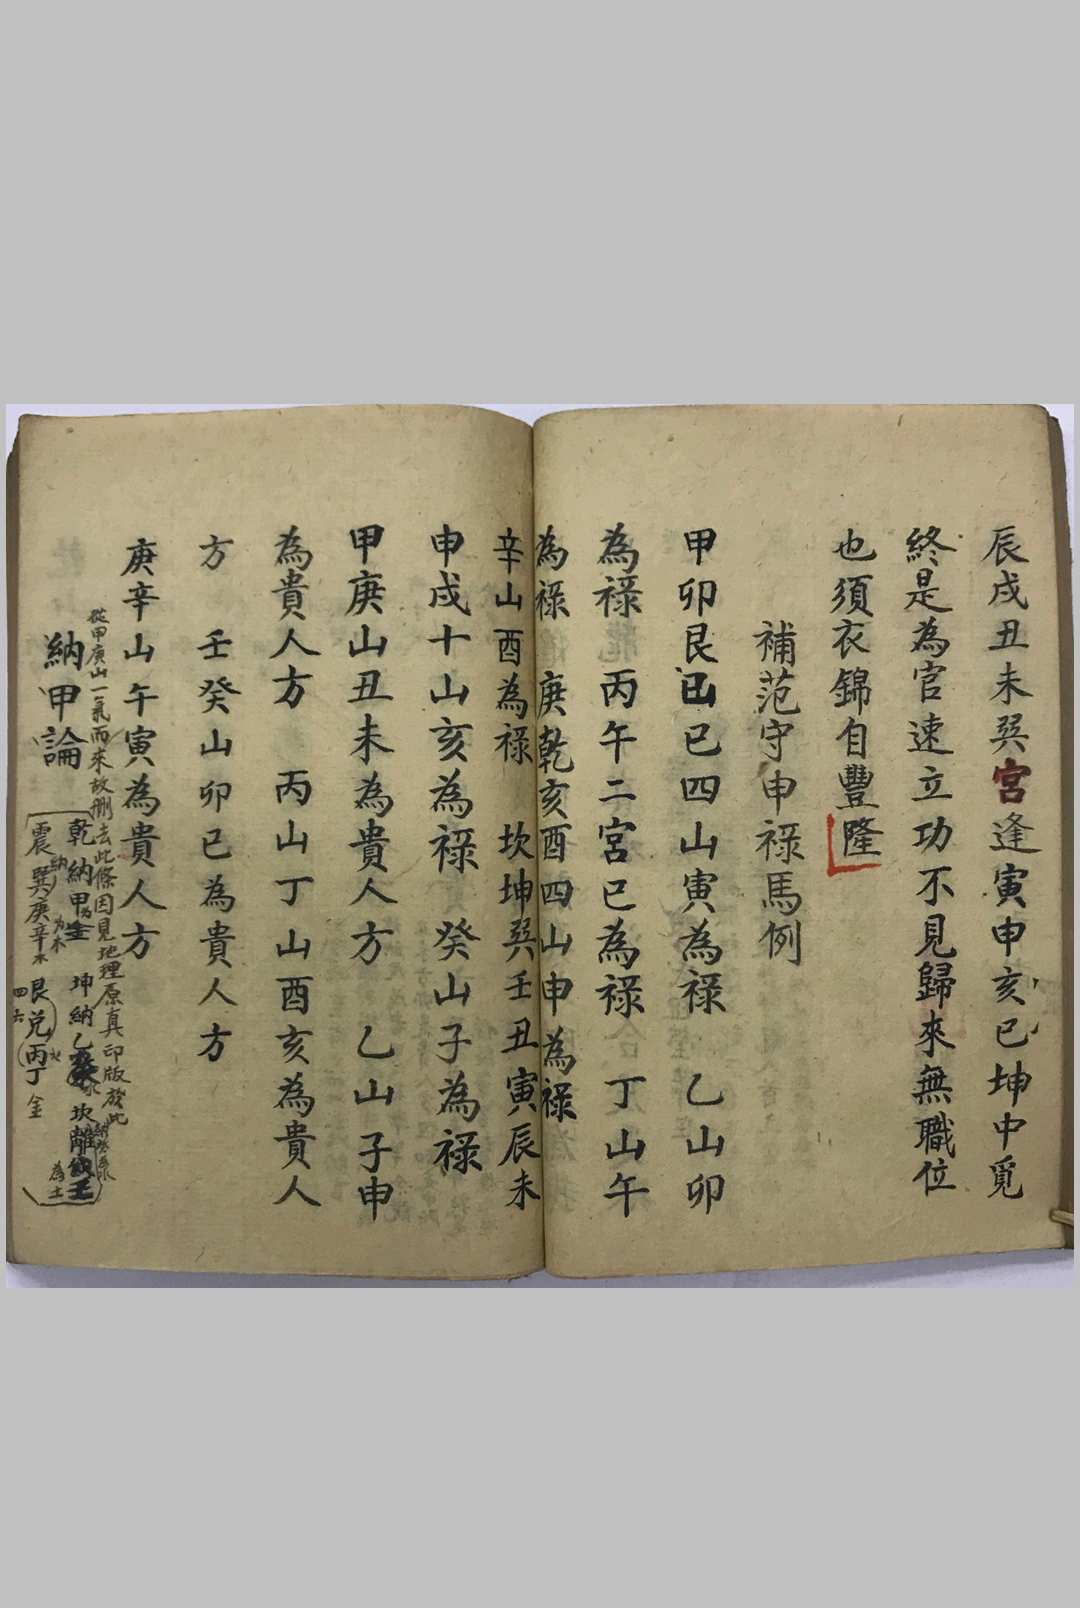 辰戌丑未巽宮逢寅申亥巳坤中覓
終是為官速立功不見歸來無職位
也須衣錦自豐隆
補范守申祿馬例
甲卯艮巳四山寅為祿　乙山卯
為祿　丙午二宮巳為祿　丁山午
為祿　庚乾亥酉四山申為祿
辛山酉為祿　坎坤巽壬丑寅辰未
申戌十山亥為祿　癸山子為祿
甲庚山丑未為貴人方　乙山子申
為貴人方　丙山丁山酉亥為貴人
方　壬癸山卯巳為貴人方
庚辛山午寅為貴人方
從甲庚山一氣而來故刪去此條因見地理原真印版放此
納甲論
乾納甲為金　坤納乙　坎離
為土
震巽庚辛木　艮兌丙丁金